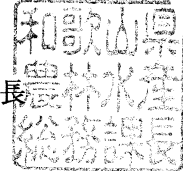 和歌山県
長
農林水産
総務課長